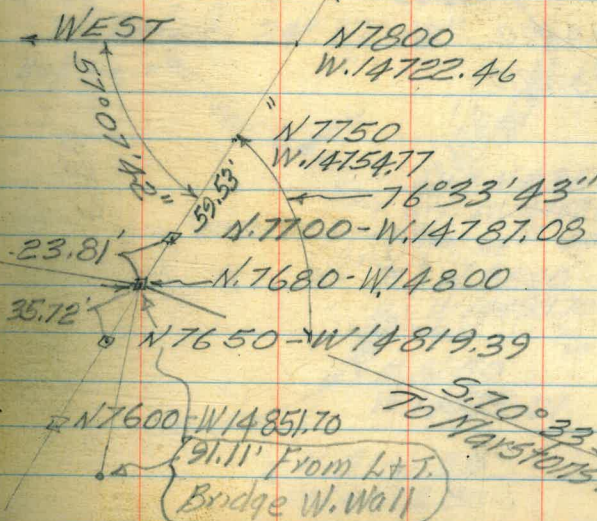 WEST
N7800
W.14722.46
57°07'42"
"
N7750
W.14754.77
59.53'
76°33'43"
N.7700-W.14787.08
23.81'
N.7680-W.14800
35.72'
N7650-W14819.39
S.70°33
To Marstons
N7600-W14851.70
91.11' From L+T.
Bridge W. Wall